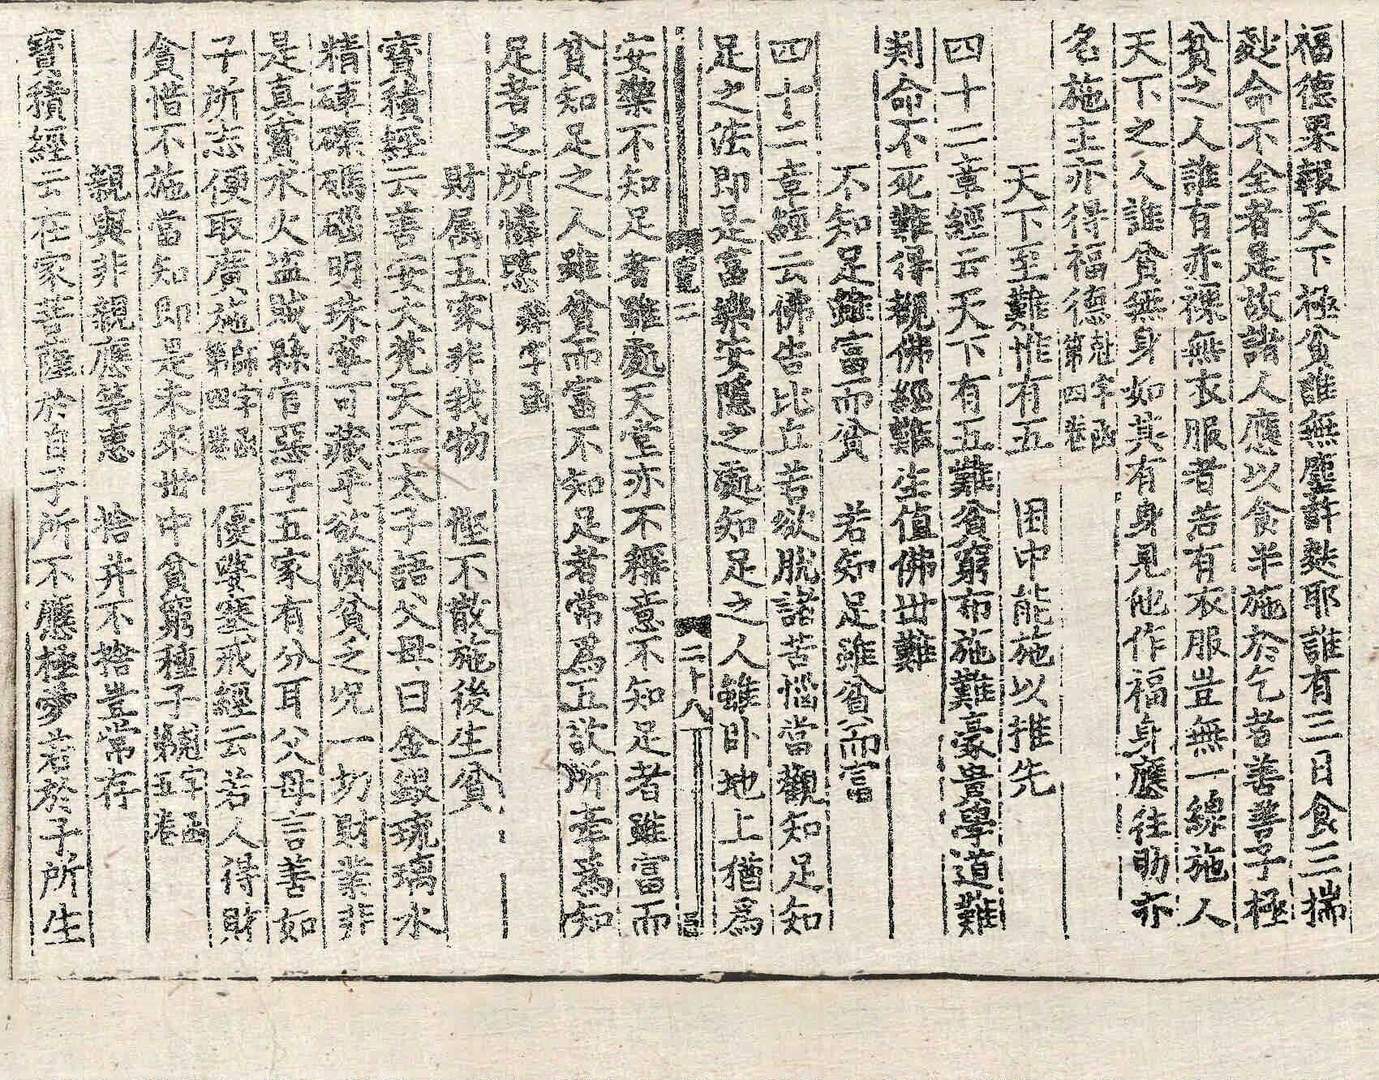 福德果報天下極貧誰無塵許麨耶誰有三日食三揣
麨命不全者是故諸人應以食半施於乞者善善子極
貧之人誰有赤裸無衣服者若有衣服豈無一線施人
天下之人誰貧無身如其有身見他作福身應往助亦
名施主亦得福德第四卷
天下至難惟有五　困中能施以推先
四十二章經云天下有五難貧窮布施難豪貴學道難
判命不死難得覩佛經難生值佛世難
不知足雖富而貧　若知足雖貧而富
四十二章經云佛告比丘若欲脫諸苦惱當觀知足知
足之法即是富樂安隱之處知足之人雖卧地上猶爲
二十八
安樂不知足者雖處天堂亦不稱意不知足者雖富而
貧知足之人雖貧而富不知足者常爲五欲所牽為知
足者之所憐愍 字函
財属五家非我物　慳不散施後生貧
寶積經云善安大梵天王太子語父母曰金銀琉璃水
精硨磲碼碯明珠寧可藏乎欲濟貧乏況一切財業非
是真寶水火盜賊縣官惡子五家有分耳父母言善如
子所志便取廣施師字函第四卷　優婆塞戒經云若人得財
貪惜不施當知即是未來世中貧窮種子字函第五卷
親與非親應等惠　捨井不捨豈常存
寶積經云在家菩薩於自子所不應極愛若於子所生